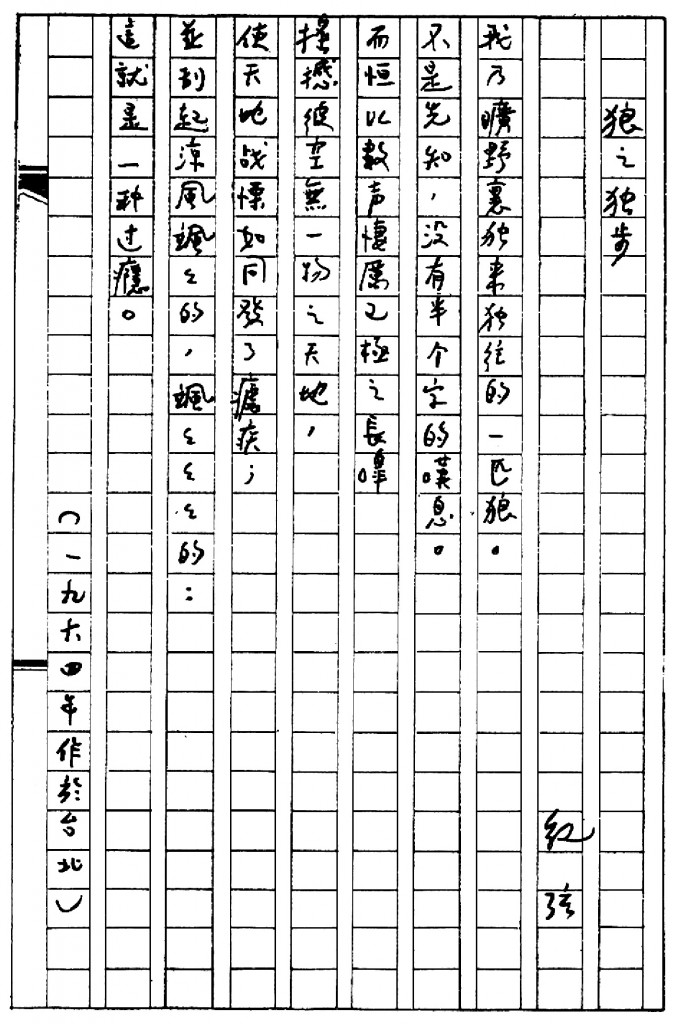 狼之独步
紀弦
我乃曠野裏独来独往的一匹狼。
不是先知,没有半个字的嘆息。
而恒以数声悽厲已極之長嗥
搖撼彼空無一物之天地,
使天地战慄如同發了瘧疾;
並刮起涼風颯々的,颯々々々的:
這就是一种过癮。
(一九六四年作於台北)